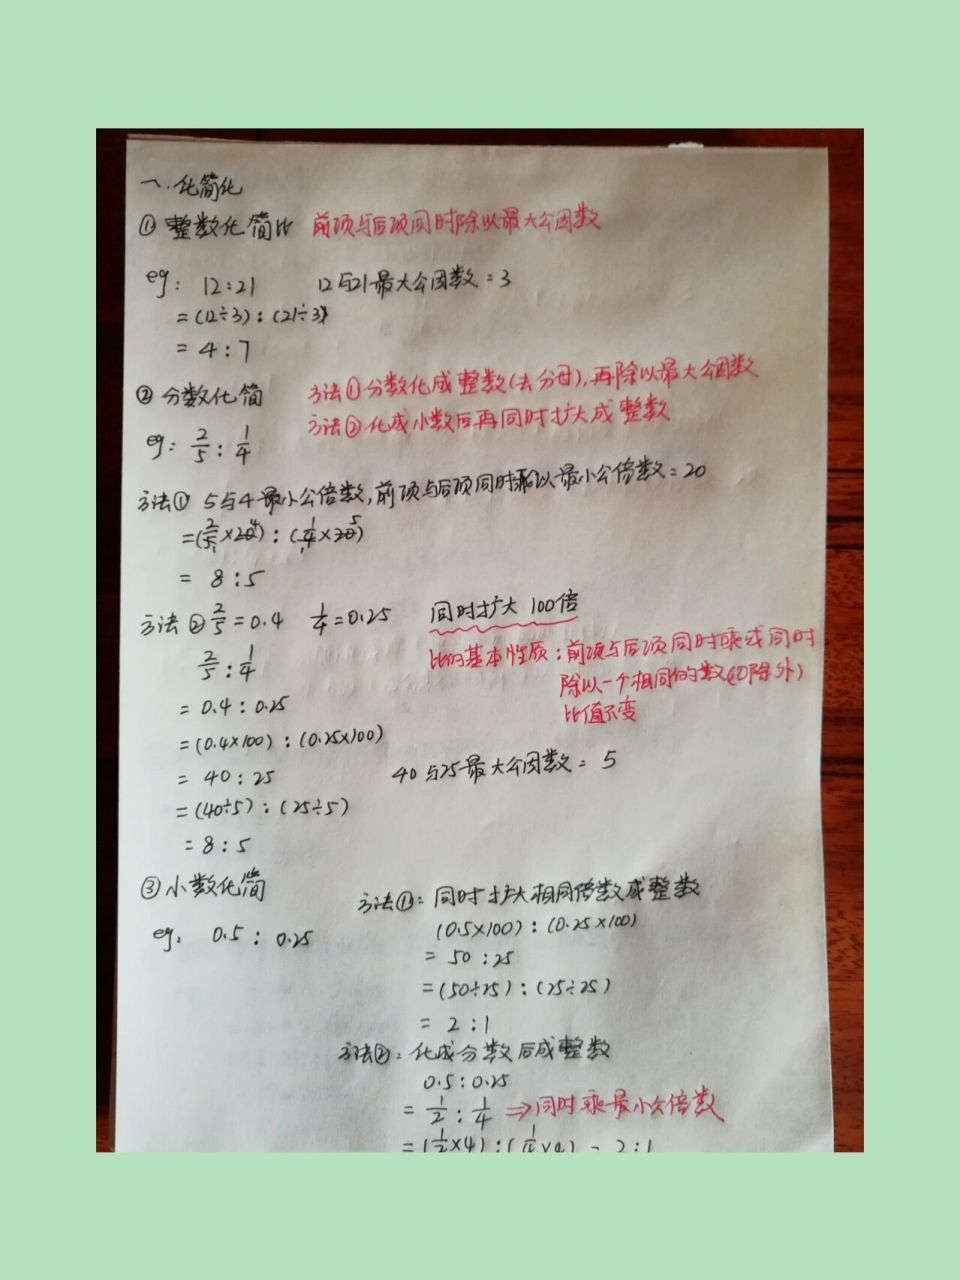 一. 化简化
① 整数化简比 前项与后项同时除以最大公因数
eg: 12:21 12与21最大公因数=3
=(12÷3):(21÷3)
= 4:7
② 分数化简 方法①分数化成整数(去分母),再除以最大公因数
方法②化成小数后再同时扩大成整数
eg: 2/5 : 1/4
方法① 5与4最小公倍数,前项与后项同时乘以最小公倍数=20
=(2/5×20):(1/4×20)
= 8:5
方法② 2/5=0.4 1/4=0.25 同时扩大100倍
比的基本性质:前项与后项同时乘或同时
除以一个相同的数(0除外)
比值不变
2/5 : 1/4
= 0.4:0.25
=(0.4×100):(0.25×100)
= 40:25 40与25最大公因数=5
=(40÷5):(25÷5)
= 8:5
③ 小数化简 方法①:同时扩大相同倍数成整数
eg: 0.5:0.25
(0.5×100):(0.25×100)
= 50:25
=(50÷25):(25÷25)
= 2:1
方法②:化成分数后成整数
0.5:0.25
= 1/2 : 1/4 ⇒同时乘最小公倍数
=(1/2×4):(1/4×4)=2:1